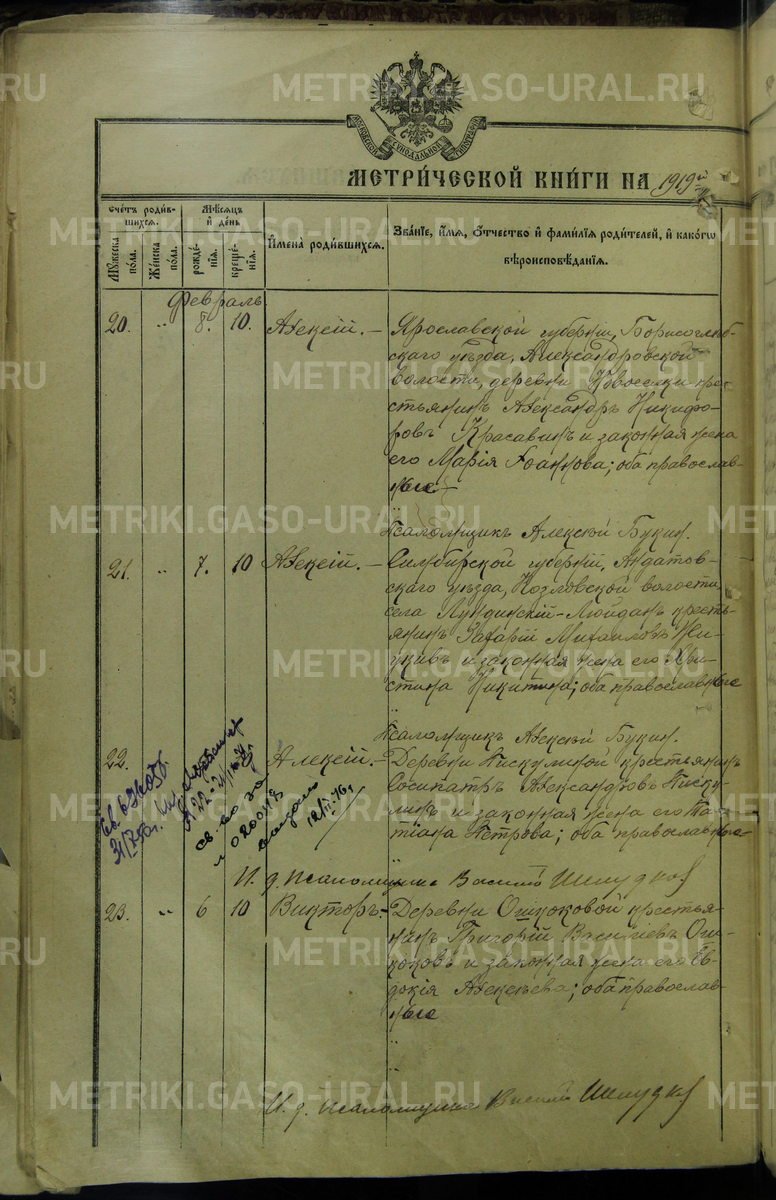 МОСКОВСКОЙ СѴНОДАЛЬНОЙ ТИПОГРАФІИ
МЕТРИ́ЧЕСКОЙ КНИ́ГИ НА 1919 й
Сче́тъ роди́в-
шихся.
Мѣ́сяцъ
и́ де́нь
Му́жеска
по́ла.
Же́нска
по́ла.
рожде́-
нія.
креще́-
нія.
И҆мена̀ роди́вшихся.
Зва́ніе, и҆́мя, о҆́тчество и҆ фами́лія роди́телей, и҆ како́гѡ
вѣроисповѣ́данія.
Февраль
20. " 8. 10. Алексій. — Ярославской губерніи, Борисоглѣб-
скаго уѣзда, Александровской
волости, деревни Новоселки кре-
стьянинъ Александръ Никифо-
ровъ Красавинъ и законная жена
его Марія Іоаннова; оба православ-
ные
Псаломщикъ Алексѣй Букин.
21. " 7. 10 Алексій. — Симбирской губерніи, Ардатов-
скаго уѣзда, Козловской волости,
села крестья-
янинъ Захарій Михаиловъ
и законная жена его Хри-
стина Никитина; оба православные
Псаломщикъ Алексѣй Букин.
22. Алексій. — Деревни Пискулиной крестьянинъ
Сосипатръ Александровъ Писку-
линъ и законная жена его Та-
тіана Петрова; оба православные
св-во
12/II-76г
И. д. псаломщика Василій
23. " 6 10 Викторъ — Деревни Ошкоковой крестья-
нинъ Григорій Василіевъ Ош-
коковъ и законная жена его Ев-
докія Алексѣева; оба православ-
ные
И. д. псаломщика Василій
METRIKI.GASO-URAL.RU